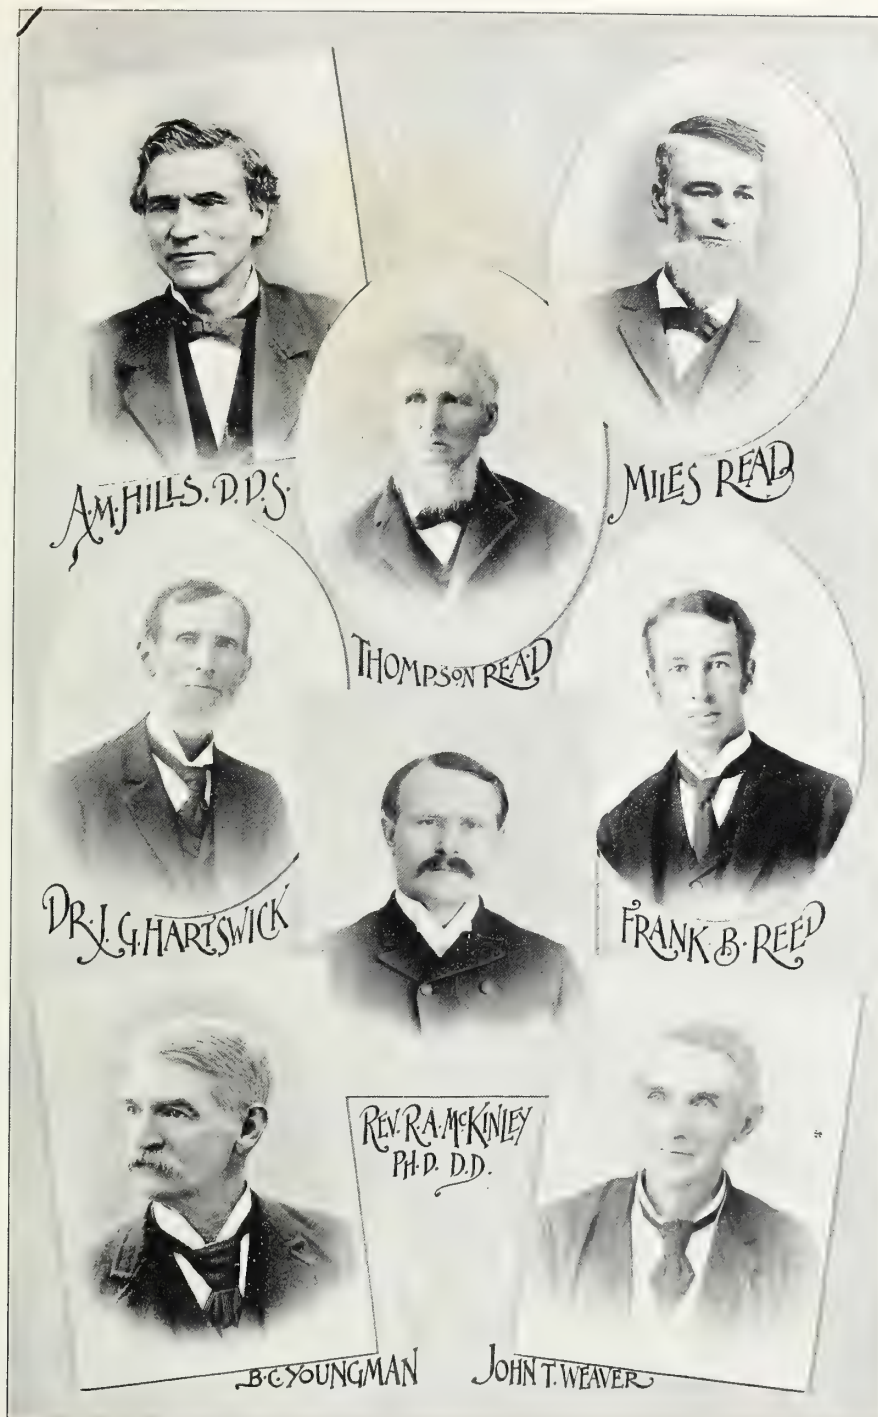 A. M. HILLS. D.D.S.
MILES READ
THOMPSON READ
DR. J. G. HARTSWICK
FRANK. B. REED
REV. R. A. McKINLEY
PH.D. D.D.
B. C. YOUNGMAN
JOHN T. WEAVER